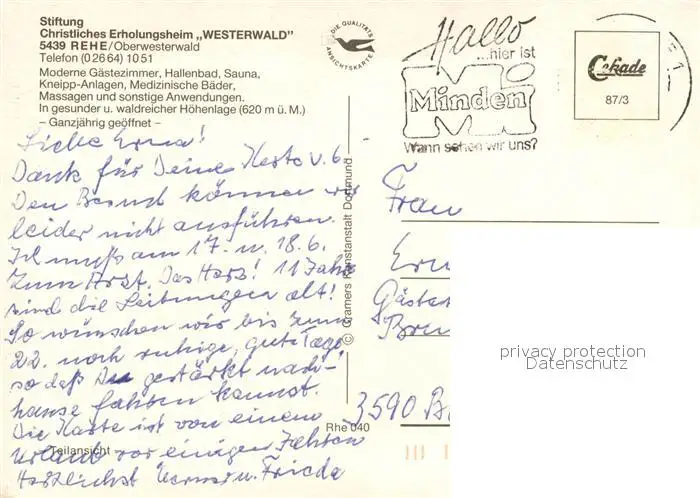 Stiftung
Christliches Erholungsheim „WESTERWALD"
5439 REHE/Oberwesterwald
Telefon (0 26 64) 10 51
Moderne Gästezimmer, Hallenbad, Sauna,
Kneipp-Anlagen, Medizinische Bäder,
Massagen und sonstige Anwendungen.
In gesunder u. waldreicher Höhenlage (620 m ü. M.)
– Ganzjährig geöffnet –
Liebe Erna!
Dank für Deine Karte v. 6.
Den Besuch können wir
leider nicht ausführen.
Ich muß am 17. u. 18.6.
zum Arzt. Das Herz! 11 Jahre
sind die Leitungen alt!
So wünschen wir bis zum
22. noch ruhige, gute Tage,
so daß Du gestärkt nach-
hause fahren kannst.
Die Karte ist von einem
Urlaub vor einigen Jahren
Herzlichst Herm. u. Frieda
Teilansicht
DIE QUALITÄTS
ANSICHTSKARTE
© Cramers Kunstanstalt Dortmund
Rhe 040
Hallo
...hier ist
Minden
Wann sehen wir uns?
Cekade
87/3
Frau
Ern
Gäste
Bru
3590 B
privacy protection
Datenschutz